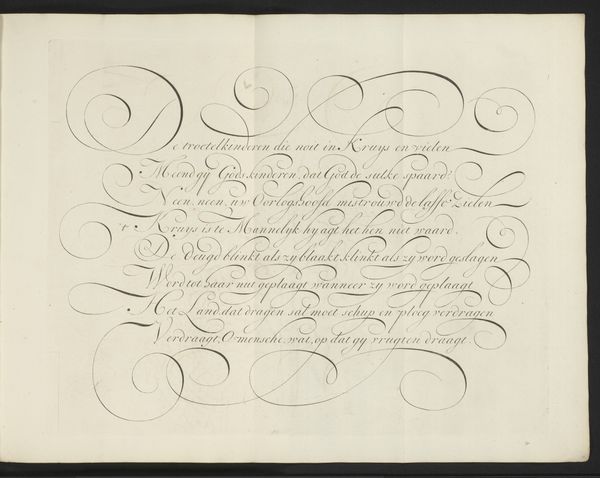 De troetelkinderen die noit in Kruys en vielen
Meend gy Gods kinderen, dat God de sulke spaard?
Neen, neen, uw Oorlogshoofd mistrouwd de laffe Zielen
't Kruys is te Mannelyk hy agt het hen niet waard.
De Deugd blinkt als zy blaakt, klinkt als zy word geslagen
Werd tot haar nut geplaagt wanneer zy word geplaagt
Het Land dat dragen sal moet schup en ploeg verdragen
Verdraagt, O mensche, wat, op dat gy vrugten draagt.